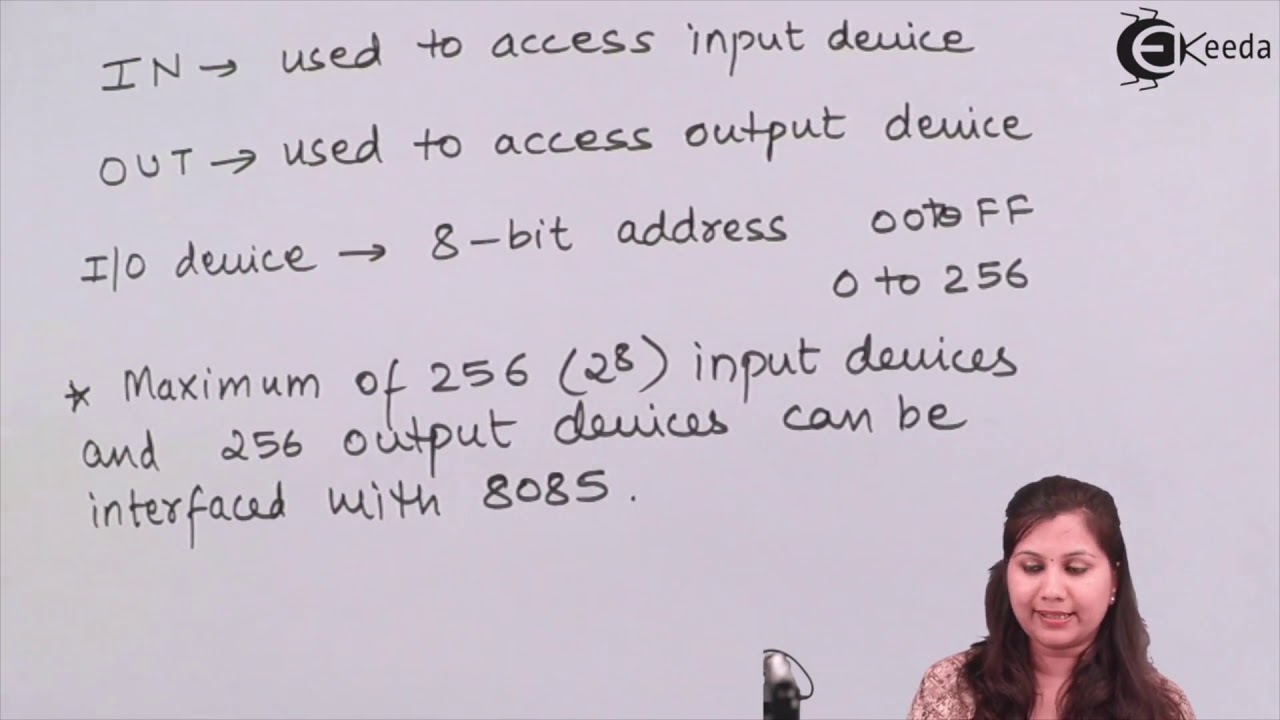 IN → used to access input device
OUT → used to access output device
I/O device → 8-bit address 00 to FF
0 to 256
* Maximum of 256 (2⁸) input devices
and 256 output devices can be
interfaced with 8085.
EKeeda